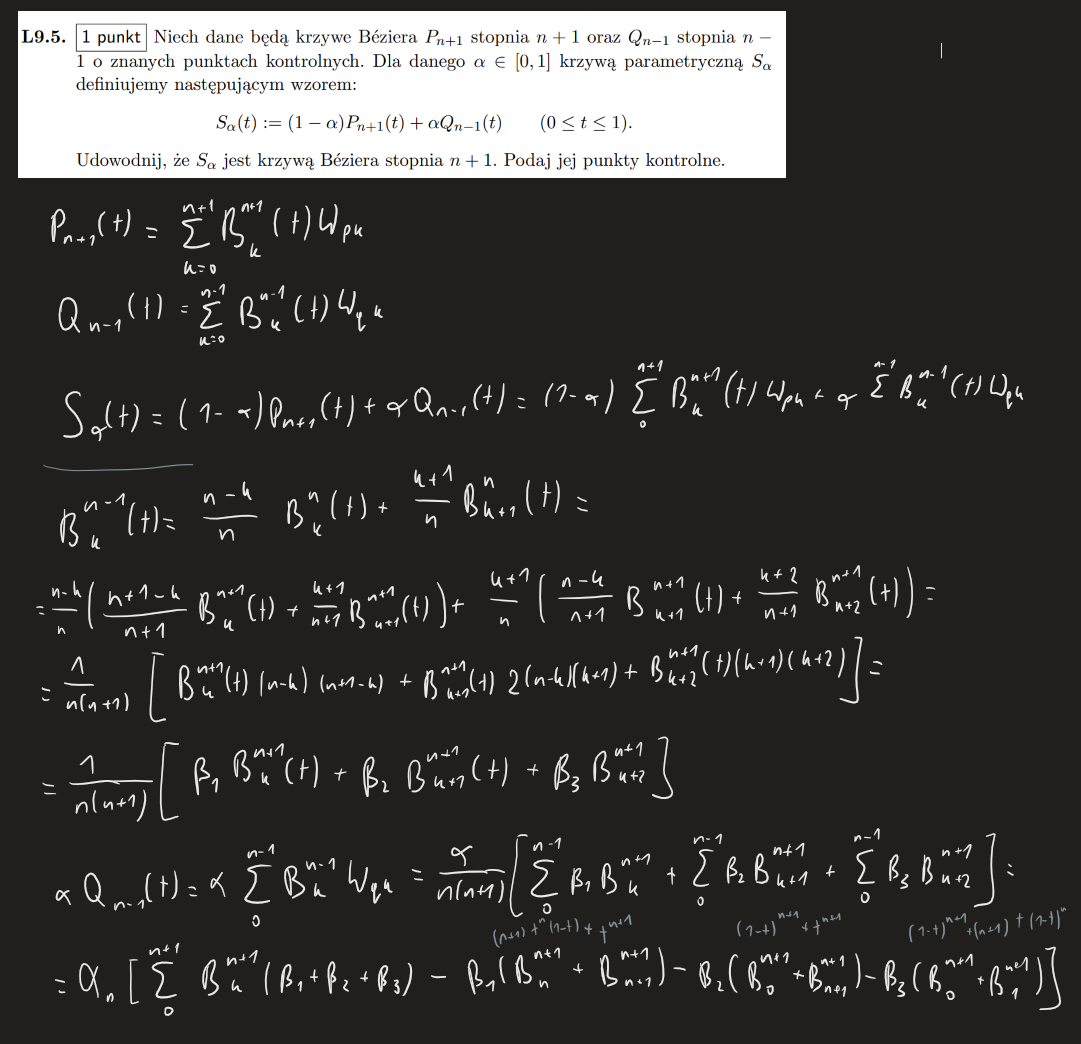 L9.5. 1 punkt Niech dane będą krzywe Béziera P_{n+1} stopnia n + 1 oraz Q_{n−1} stopnia n −
1 o znanych punktach kontrolnych. Dla danego α ∈ [0, 1] krzywą parametryczną S_α
definiujemy następującym wzorem:
S_α(t) := (1 − α)P_{n+1}(t) + αQ_{n−1}(t) (0 ≤ t ≤ 1).
Udowodnij, że S_α jest krzywą Béziera stopnia n + 1. Podaj jej punkty kontrolne.
P_{n+1}(t) = Σ_{k=0}^{n+1} B_k^{n+1}(t) W_{pk}
Q_{n-1}(t) = Σ_{k=0}^{n-1} B_k^{n-1}(t) W_{qk}
S_α(t) = (1-α)P_{n+1}(t) + αQ_{n-1}(t) = (1-α) Σ_0^{n+1} B_k^{n+1}(t) W_{pk} + α Σ^{n-1} B_k^{n-1}(t) W_{qk}
B_k^{n-1}(t) = \frac{n-k}{n} B_k^n(t) + \frac{k+1}{n} B_{k+1}^n(t) =
= \frac{n-k}{n} ( \frac{n+1-k}{n+1} B_k^{n+1}(t) + \frac{k+1}{n+1} B_{k+1}^{n+1}(t) ) + \frac{k+1}{n} ( \frac{n-k}{n+1} B_{k+1}^{n+1}(t) + \frac{k+2}{n+1} B_{k+2}^{n+1}(t) ) =
= \frac{1}{n(n+1)} [ B_k^{n+1}(t) (n-k) (n+1-k) + B_{k+1}^{n+1}(t) 2(n-k)(k+1) + B_{k+2}^{n+1}(t)(k+1)(k+2) ] =
= \frac{1}{n(n+1)} [ β_1 B_k^{n+1}(t) + β_2 B_{k+1}^{n+1}(t) + β_3 B_{k+2}^{n+1} ]
α Q_{n-1}(t) = α Σ_0^{n-1} B_k^{n-1} W_{qk} = \frac{α}{n(n+1)} [ Σ_0^{n-1} β_1 B_k^{n+1} + Σ_0^{n-1} β_2 B_{k+1}^{n+1} + Σ_0^{n-1} β_3 B_{k+2}^{n+1} ] =
(n+1) t^n (1-t) + t^{n+1} (1-t)^{n+1} + t^{n+1} (1-t)^{n+1} + (n+1) t (1-t)^n
= α_n [ Σ_0^{n+1} B_k^{n+1} (β_1 + β_2 + β_3) - β_1 ( B_n^{n+1} + B_{n+1}^{n+1} ) - β_2 ( B_0^{n+1} + B_{n+1}^{n+1} ) - β_3 ( B_0^{n+1} + B_1^{n+1} ) ]